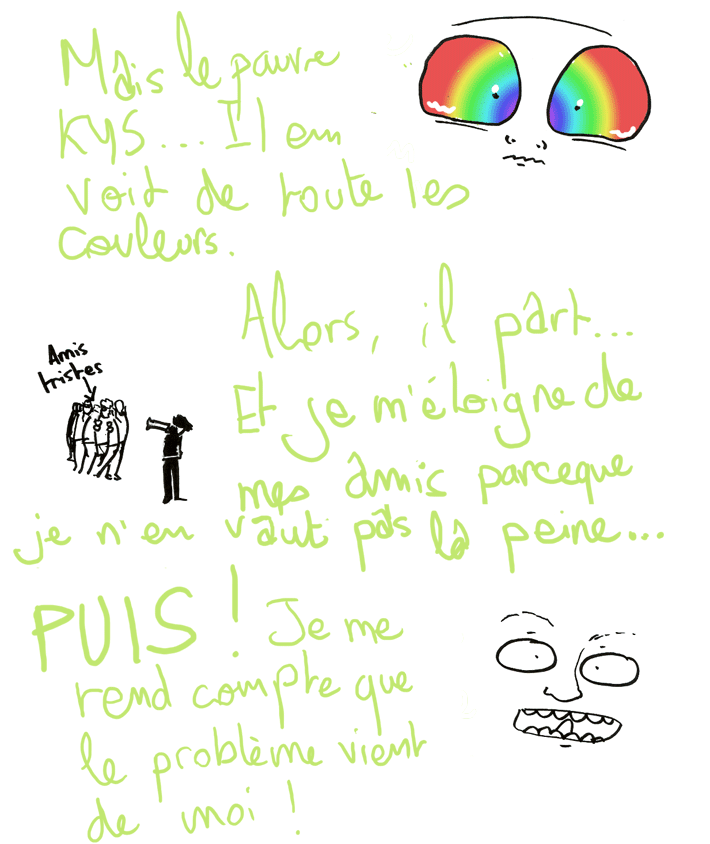 Mais le pauvre
KYS... Il en
voit de toute les
couleurs.
Alors, il part...
Amis
tristes
Et je m'éloigne de
mes amis parceque
je n'en vaut pas la peine...
PUIS ! Je me
rend compte que
le problème vient
de moi !